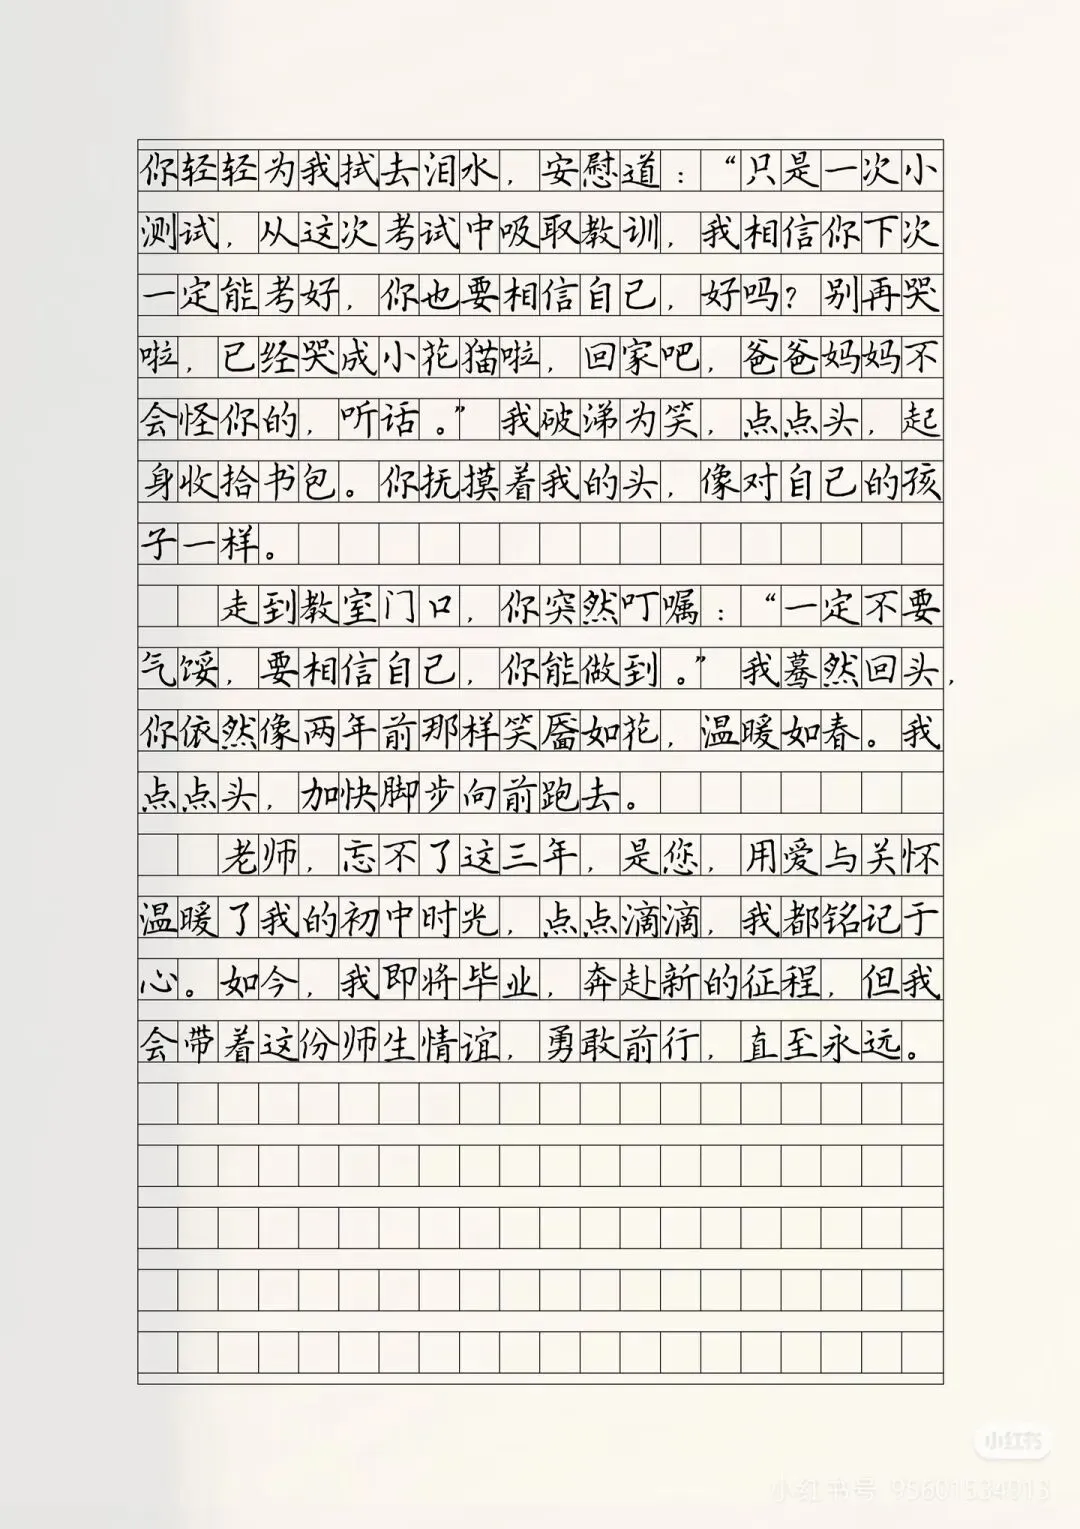 你轻轻为我拭去泪水，安慰道：“只是一次小
测试，从这次考试中吸取教训，我相信你下次
一定能考好，你也要相信自己，好吗？别再哭
啦，已经哭成小花猫啦，回家吧，爸爸妈妈不
会怪你的，听话。”我破涕为笑，点点头，起
身收拾书包。你抚摸着我的头，像对自己的孩
子一样。
走到教室门口，你突然叮嘱：“一定不要
气馁，要相信自己，你能做到。”我蓦然回头，
你依然像两年前那样笑靥如花，温暖如春。我
点点头，加快脚步向前跑去。
老师，忘不了这三年，是您，用爱与关怀
温暖了我的初中时光，点点滴滴，我都铭记于
心。如今，我即将毕业，奔赴新的征程，但我
会带着这份师生情谊，勇敢前行，直至永远。
小红书
小红书号 95601534913